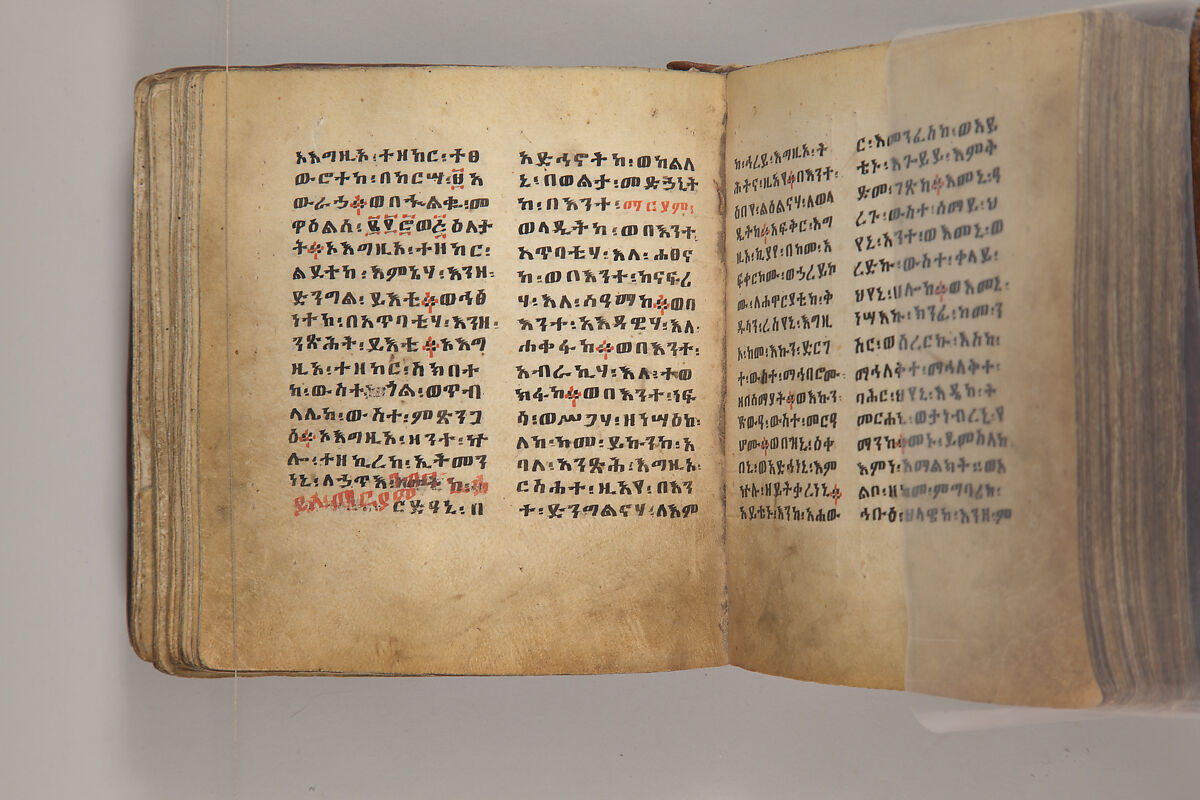 አእግዚአ፡ተዘከር፡ተፀ
ውሮተከ፡በከርሣ፡፱አ
ውራኅ፨ወበሕልቁ፡መ
ዋዕልሰ፡
ት፨ኦእግዚአ፡ተዘከር፡
ልደተከ፡እምኔሃ፡እንዘ፡
ድንግል፡ይእቲ፨ወሀፅ
ነተከ፡በአጥባቲሃ፡እንዘ፡
ንጽሕት፡ይእቲ፨ኦእግ
ዚአ፡ተዘከር፡ስክበተ
ከ፡ውስተ፡ጎል፡ወጥብ
ላሌከ፡ውስተ፡ምጽንጊ
ዕ፨ኦእግዚአ፡ዘንተ፡ኵ
ሎ፡ተዘኪረከ፡ኢትመን
ነኒ፡ለኃጥእ፡
ርድዓኒ፡በ
አድኅኖትከ፡ወከልለ
ኒ፡በወልታ፡መድኃኒት
ከ፡በእንተ፡ማርያም፡
ወላዲትከ፡ወበእንተ
አጥባቲሃ፡እለ፡ሐፀና
ከ፡ወበእንተ፡ከናፍሪ
ሃ፡እለ፡ሰዓማከ፨ወበ
እንተ፡አእዳዊሃ፡እለ፡
ሐቀፋከ፨ወበእንተ፡
አብራኪሃ፡እለ፡ተወ
ክፋከ፨ወበእንተ፡ነፍ
ስ፡ወሥጋሃ፡ዘነሣዕከ፡
ለከ፡ከመ፡ይኩንከ፡አ
ባለ፡እንጽሕ፡እግዚእ፡
ርስሐተ፡ዚአየ፡በእን
ተ፡ድንግልናሃ፡ለእም
ከ፡ሓረይ፡እግዚእ፡ት
ሕትና፡ዚአየ፨በእንተ፡
ዕበየ፡ልዕልናሃ፡ለወላ
ዲትከ፨አፍቅር፡እግ
ዚእ፡ኪያየ፡በከመ፡አ
ፍቀርከሙ፡ወኃረይኮ
ሙ፡ለሐዋርያቲከ፡ቅ
ዱሳን፡ረስየኒ፡እግዚ
እ፡ከመ፡እኩን፡ድርገ
ት፡ውስተ፡ማኅበሮሙ፡
ዘበሰማያት፨ወእኩን፡
ጽውዓ፡ውስተ፡መርዓ
ሆሙ፨ወበዝኒ፡ዕቀ
በኒ፡ወአድኅነኒ፡እም
ኵሉ፡ዘይትቃረነኒ፨
አይቴኑ፡እንከ፡አሐው
ር፡እመንፈስከ፡ወአይ
ቴኑ፡እጐይይ፡እምቅ
ድመ፡ገጽከ፨እመኒ፡ዓ
ረጉ፡ውስተ፡ሰማይ፡ህ
የኒ፡አንተ፡ወእመኒ፡ወ
ረድኩ፡ውስተ፡ቀላይ፡
ህየኒ፡ሀሎከ፨ወእመኒ፡
ነሣእኩ፡ክንፈ፡ከመ፡ን
አር፡ወሰረርኩ፡እስከ፡
ማኅለቅተ፡ማኅለቅተ፡
ባሕር፡ህየኒ፡እዴከ፡ት
መርሐኒ፡ወታነብረኒ፡የ
ማንከ፨መኑ፡ይመስለከ
እምነ፡አማልክት፡ወአ
ልቦ፡ዘከመ፡ምግባረከ፡
ኅቡዕ፡ህላዌከ፡እንዘ፡ም